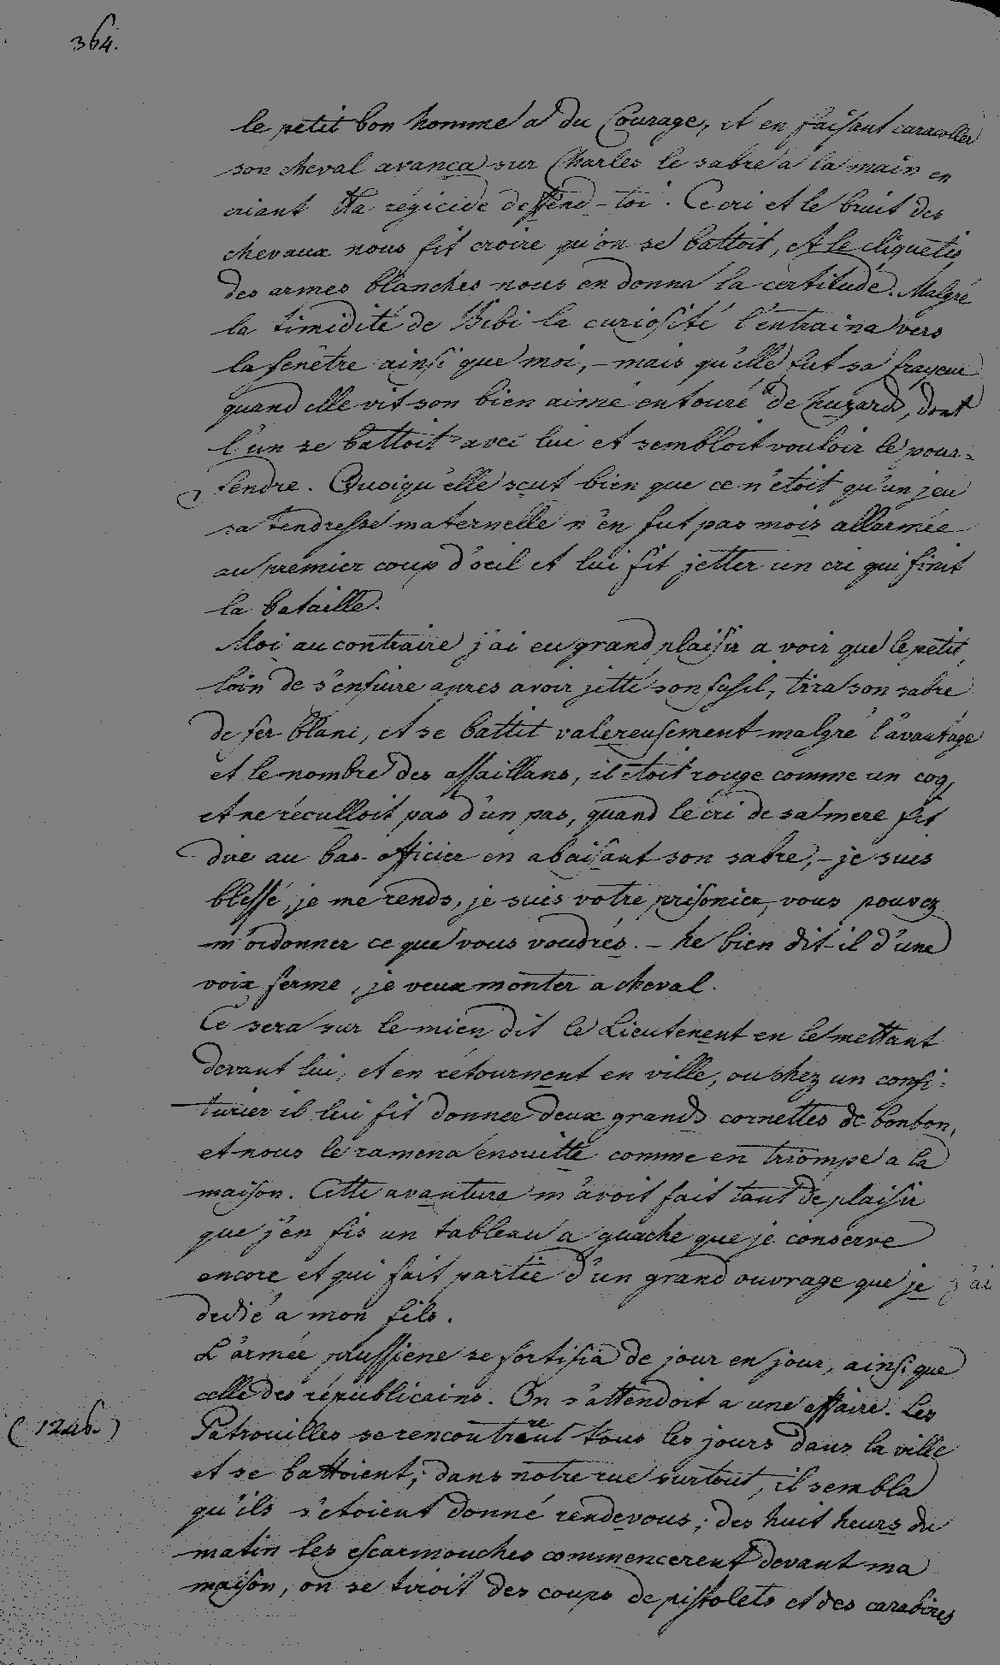 364.
le petit bon homme a du Courage, et en faisant caracoller
son cheval avança sur Charles le sabre a la main en
criant Ha régicide deffend-toi. Ce cri et le bruit des
chevaux nous fit croire qu'on se battoit, et le cliquetis
des armes blanches nous en donna la certitude. Malgré
la timidité de Bebi la curiosité l'entraina vers
la fenêtre ainsi que moi, - mais qu'elle fut sa frayeur
quand elle vit son bien aimé entouré de huzards, dont
l'un se battoit avec lui et sembloit vouloir le pour=
fendre. Quoiqu'elle scut bien que ce n'étoit qu'un jeu
sa tendresse maternelle n'en fut pas mois allarmée
au premier coup d'oeil et lui fit jetter un cri qui finit
la bataille.
Moi au contraire j'ai eu grand plaisir a voir que le petit,
loin de s'enfuire apres avoir jetté son fusil, tira son sabre
de fer blanc, et se battit valereusement malgré l'avantage
et le nombre des assaillans, il étoit rouge comme un coq,
et ne réculloit pas d'un pas, quand le cri de sa mere fit
dire au bas-officier en abaisant son sabre, - je suis
blessé, je me rends, je suis votre prisonier, vous pouvez
m'ordonner ce que vous voudrés. - he bien dit-il d'une
voix ferme, je veux monter a cheval.
Ce sera sur le mien dit le Lieutenent en le mettant
devant lui, et en rétournent en ville, ou chez un confi=
turier il lui fit donner deux grands cornettes de bonbon,
et nous le ramena ensuitte comme en triompe a la
maison. Cette avanture m'avoit fait tant de plaisir
que j'en fis un tableau a guache que je conserve
encore et qui fait partie d'un grand ouvrage que je j'ai
dedié a mon fils.
L'armée prussiene se fortifia de jour en jour, ainsi que
celle des républicains. On s'attendoit a une affaire. Les
(1246.) Patrouilles se rencontrerent tous les jours dans la ville
et se battoient; dans notre rue surtout, il sembla
qu'ils s'etoient donné rendevous; des huit heurs du
matin les escarmouches commencerent devant ma
maison, on se tiroit des coups de pistolets et des carabines